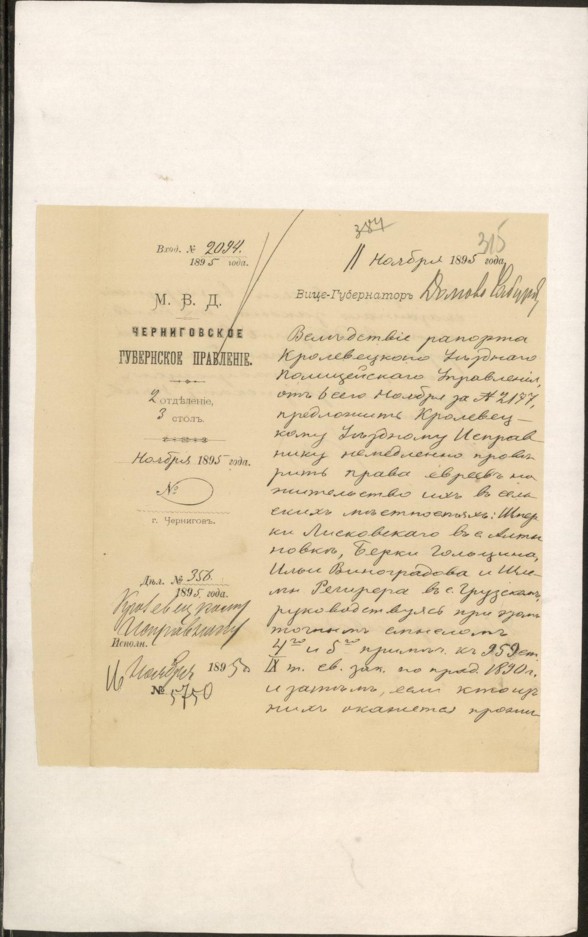 387
315
Вход. № 2094.
1895 года.
11 Ноября 1895 года
Вице-Губернаторъ
М. В. Д.
ЧЕРНИГОВСКОЕ
ГУБЕРНСКОЕ ПРАВЛЕНІЕ.
2 отдѣленіе,
3 столъ.
Ноября 1895 года.
№
г. Черниговъ.
Дѣл. № 356.
1895 года.
Кролевецкому
Исправнику
Исполн.
16 Ноября 1895
№ 5750
Вслѣдствіе рапорта
Кролевецкого Уѣзднаго
Полицейскаго Управленія,
отъ 6 сего Ноября за № 2177,
предложить Кролевец-
кому Уѣздному Исправ
нику немедленно провѣ
рить права евреевъ на
жительство ихъ въ сель
скихъ мѣстностяхъ:
ки Лисковскаго въ с. Алты
новкѣ, Берки Гольцина,
Ильи Виноградова и Шле
мы въ с. Грузскомъ,
руководствуясь при этомъ
точнымъ смысломъ
4го и 5го примѣч. къ 959 ст.
IX т. св. зак. по прод. 1890 г.
и затѣмъ, если кто изъ
нихъ окажется прожи